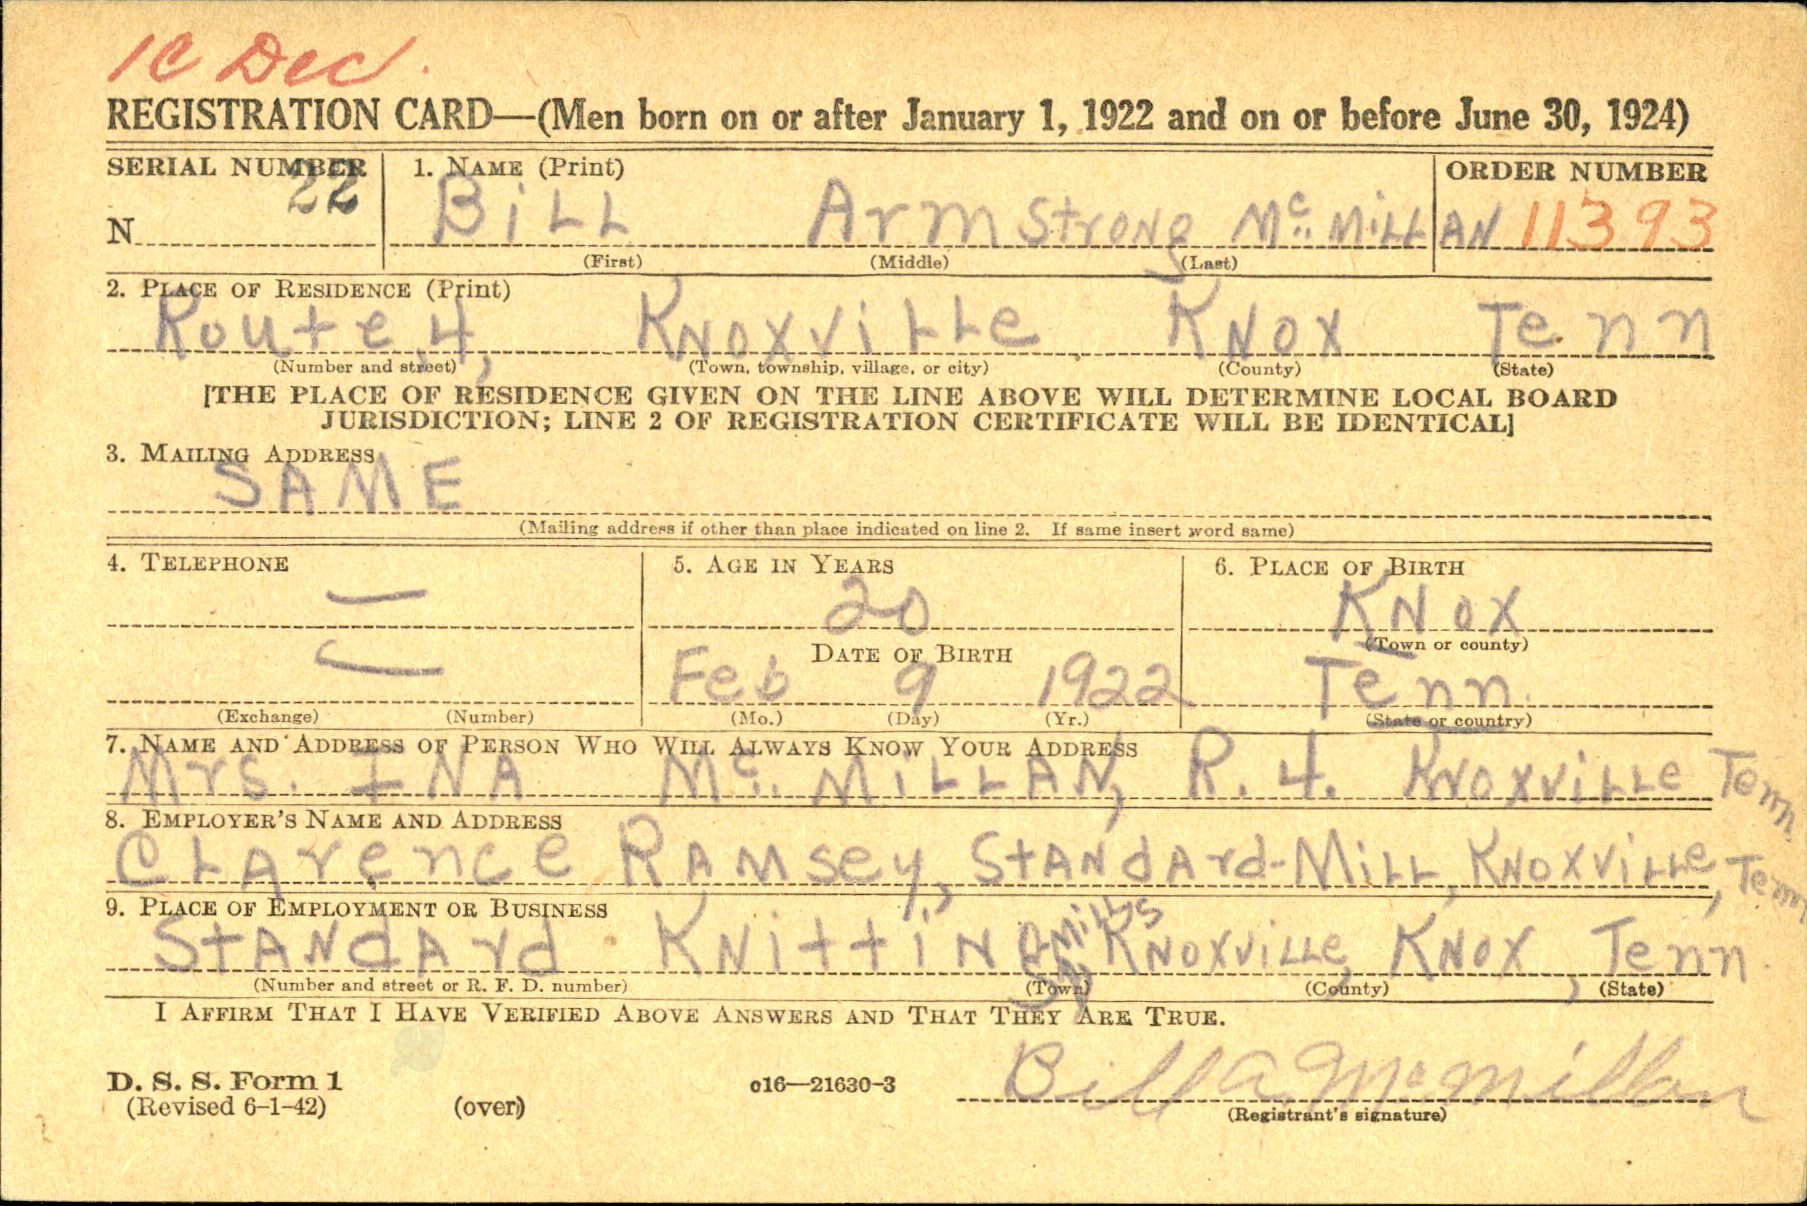 1C Dec.
REGISTRATION CARD—(Men born on or after January 1, 1922 and on or before June 30, 1924)
SERIAL NUMBER 1. NAME (Print) ORDER NUMBER
N 22 BiLL ArmStrong Mc.MiLLAN 11393
(First) (Middle) (Last)
2. PLACE OF RESIDENCE (Print)
Route 4, KNOXViLLe KNOX Tenn
(Number and street) (Town, township, village, or city) (County) (State)
[THE PLACE OF RESIDENCE GIVEN ON THE LINE ABOVE WILL DETERMINE LOCAL BOARD
JURISDICTION; LINE 2 OF REGISTRATION CERTIFICATE WILL BE IDENTICAL]
3. MAILING ADDRESS
SAME
(Mailing address if other than place indicated on line 2. If same insert word same)
4. TELEPHONE 5. AGE IN YEARS 6. PLACE OF BIRTH
— 20 KNOX
DATE OF BIRTH (Town or county)
— Feb 9 1922 Tenn.
(Exchange) (Number) (Mo.) (Day) (Yr.) (State or country)
7. NAME AND ADDRESS OF PERSON WHO WILL ALWAYS KNOW YOUR ADDRESS
Mrs. INA Mc. MiLLAN, R. 4. KNOXViLLe Tenn
8. EMPLOYER'S NAME AND ADDRESS
CLArence RAMSey, StANdArd-MiLL, KNOXViLLe, Tenn
9. PLACE OF EMPLOYMENT OR BUSINESS
StANdArd KNittiNg MiLLS KNOXViLLe, KNOX, Tenn.
(Number and street or R. F. D. number) (Town) (County) (State)
I AFFIRM THAT I HAVE VERIFIED ABOVE ANSWERS AND THAT THEY ARE TRUE.
D. S. S. Form 1 c16—21630-3 Bill A McMillan
(Revised 6-1-42) (over) (Registrant's signature)